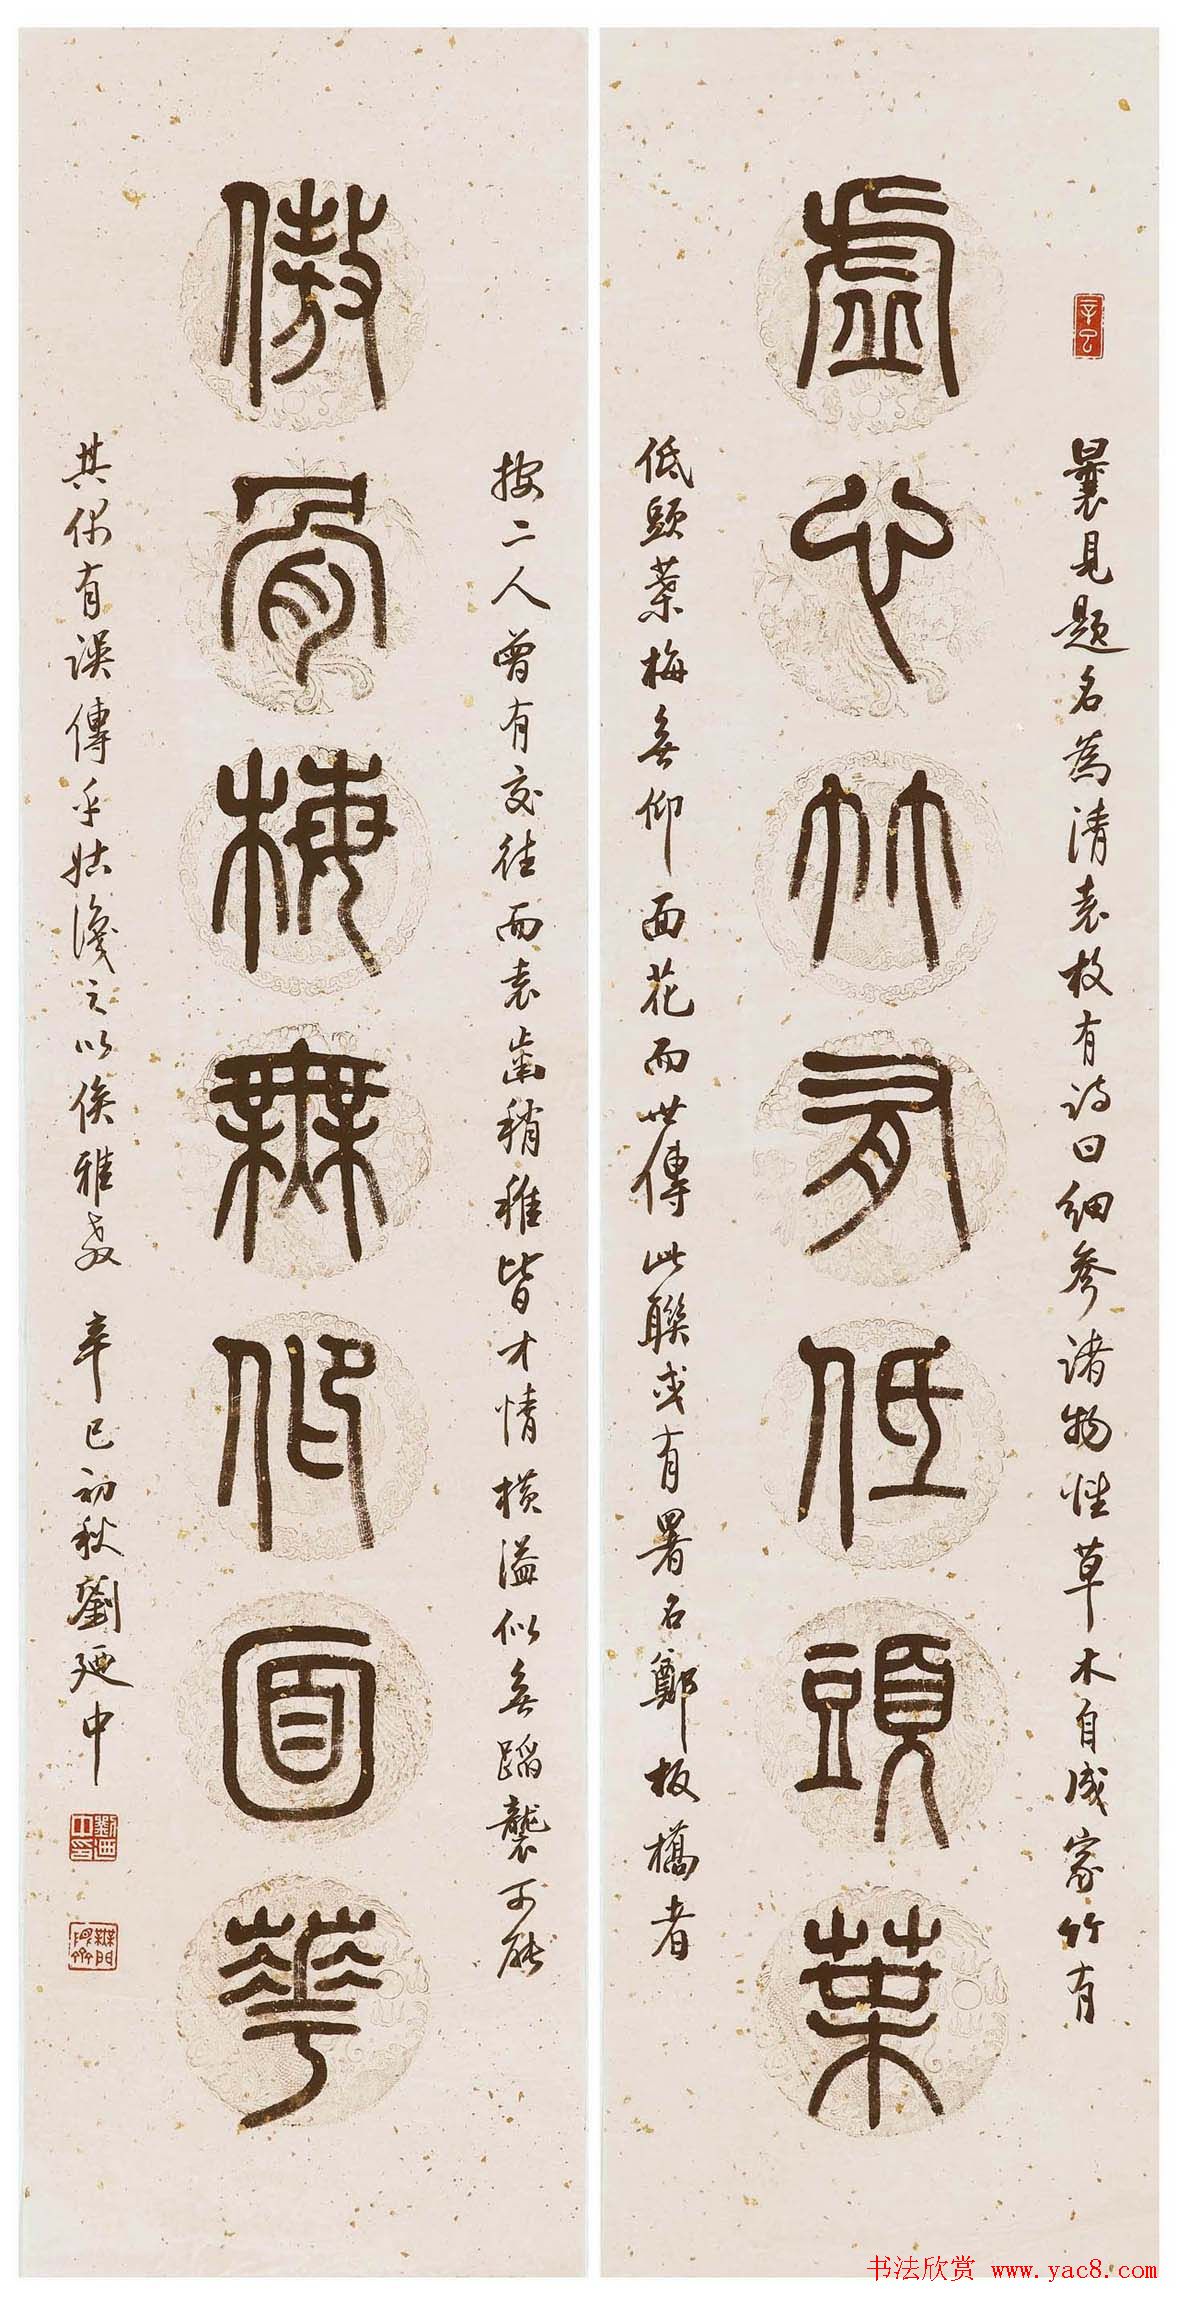 辛巳
曩見題名為清袁枚有詩曰細參諸物性草木自成家竹有
虛心竹有低頭葉
低頭葉梅無仰面花而世傳此聯或有署名鄭板橋者
按二人曾有交往而袁齒稍稚皆才情橫溢似無蹈襲可能
傲骨梅無仰面華
其仍有誤傳乎姑識之以俟雅教 辛巳初秋劉廼中
書法欣赏 www.yac8.com